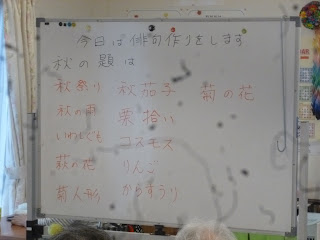 今日は俳句作りをします
秋の題は
秋祭り 秋茄子 菊の花
秋の雨 栗拾い
いわしぐも コスモス
萩の花 りんご
菊人形 からすうり